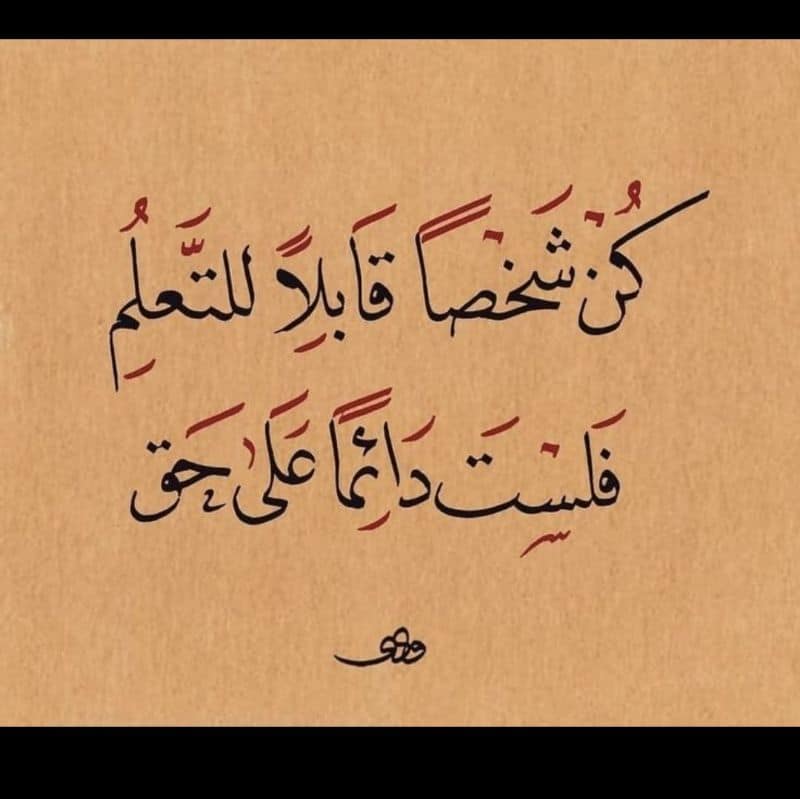 كُنْ شَخْصاً قَابِلاً للتَّعلُمِ
فَلَسْتَ دَائِمًا عَلىٰ حَق